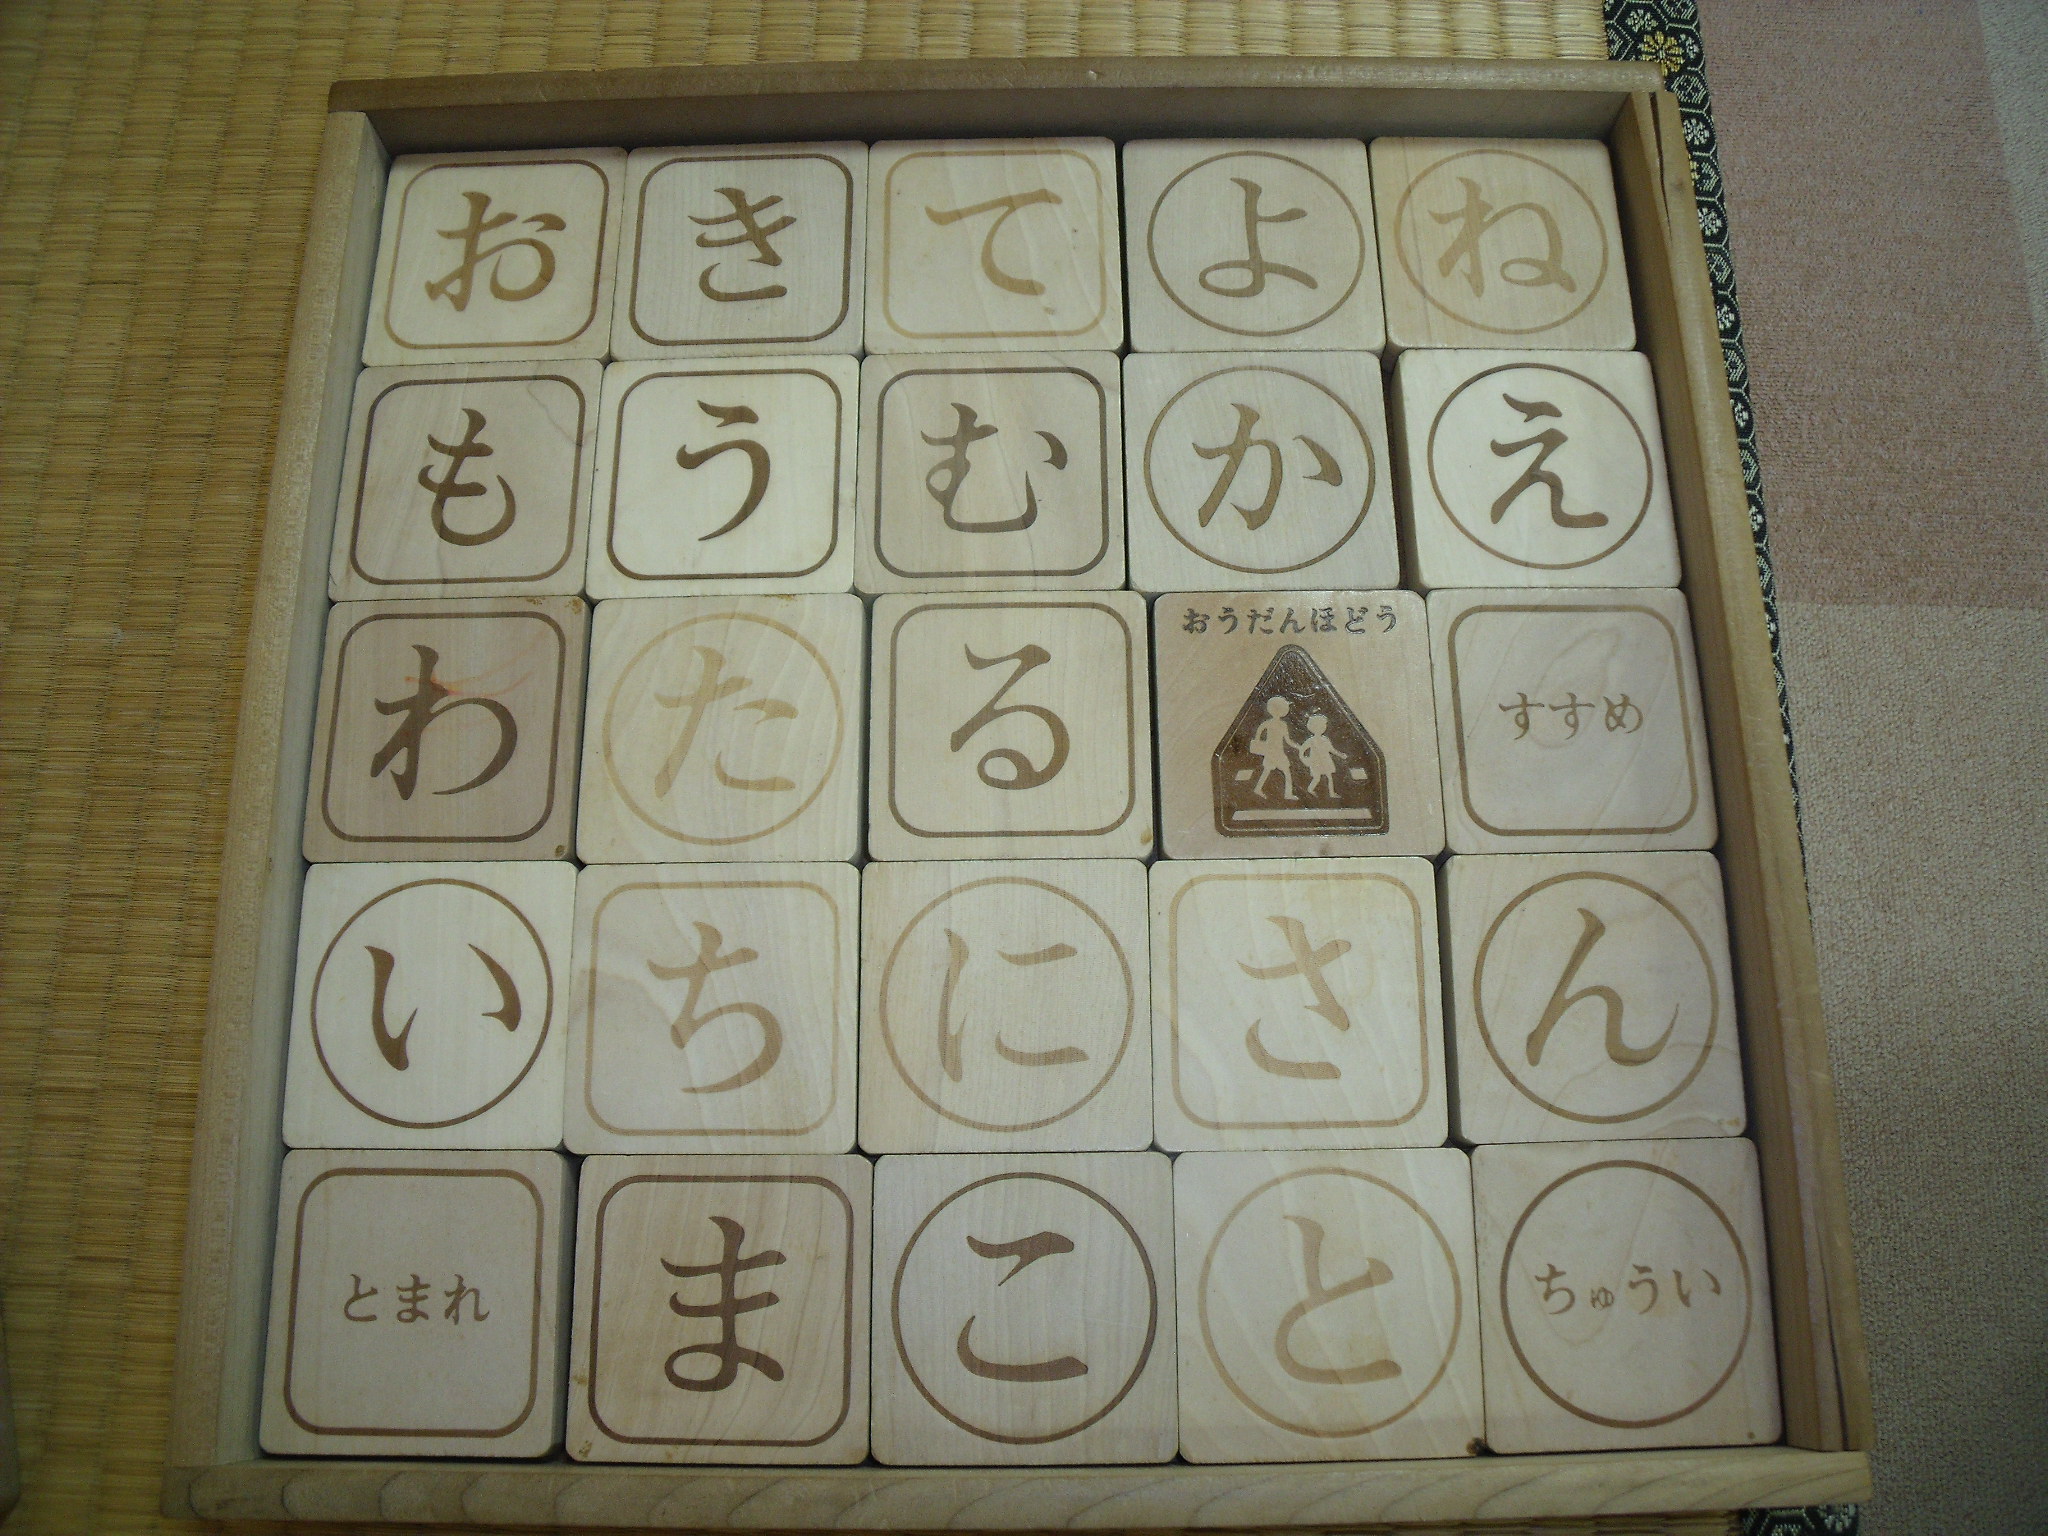 おきてよね
もうむかえ
わたる おうだんほどう すすめ
いちにさん
とまれ まこと ちゅうい